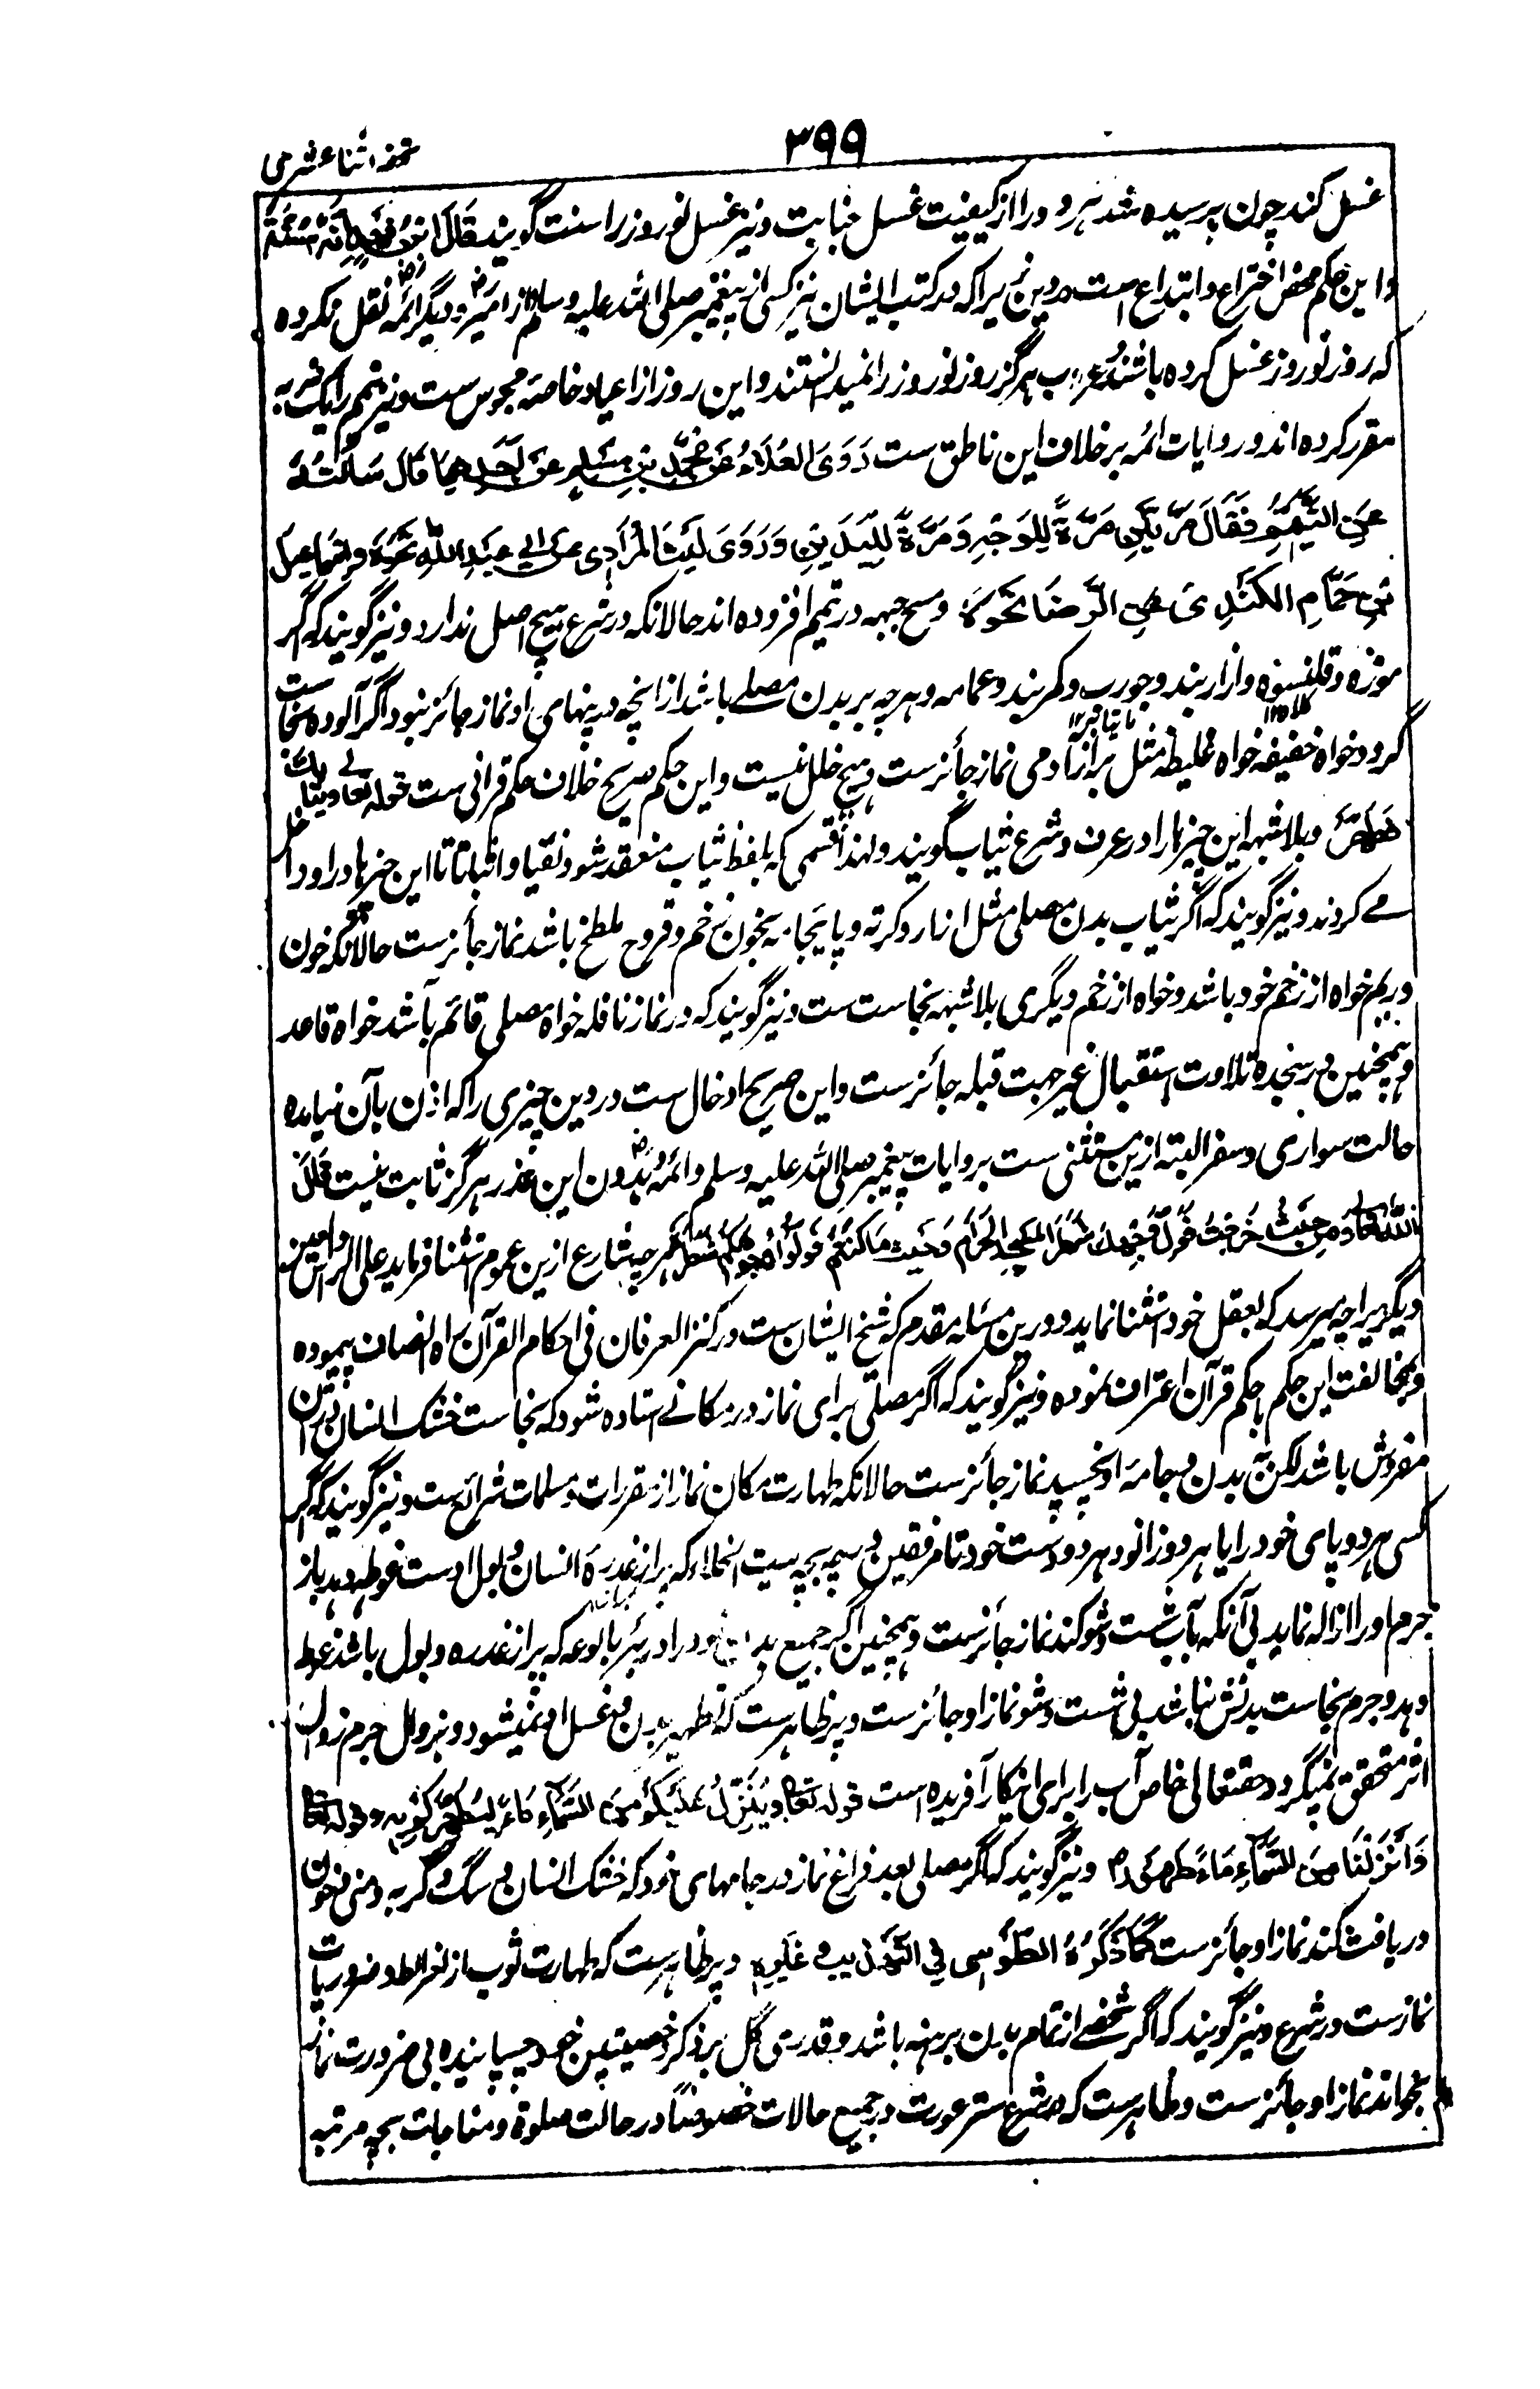 ۳۹۹
تحفه اثنا عشری
غسل کند چون پرسیده شد هر دو را از کیفیت غسل جنابت و نیز غسل نوروز را سنت گویند قال ابن فهد انه سنة
و این حکم محض اختراع و ابتداع است در دین زیرا که در کتب ایشان نیز کسی از پیغمبر صلی الله علیه وسلم از امیر و دیگر ائمه نقل نکرده
که روز نوروز غسل کرده باشند عرب هرگز روز نوروز را نمیدانستند و این روز از اعیاد خاصهٔ مجوس ست و نیز تیمم را یک ضربه
مقرر کرده اند و روایات ائمه بر خلاف این ناطق ست رَوَی العَلَاءُ عَن مُحَمَّدِ بنِ مُسلِمٍ عَن اَحَدِهِمَا قَالَ سَاَلتُهُ
عَنِ التَّیَمُّمِ فَقَالَ مَرَّتَینِ مَرَّةً لِلوَجهِ وَمَرَّةً لِلیَدَینِ وَرَوَی لَیثُ المُرَادِی عَن اَبِی عَبدِ اللهِ نَحوَهُ وَاِسمَاعِیلُ
بنُ هَمَّامِ الکندِی عَنِ الرِّضَا نَحوَهُ و مسح جبهه در تیمم افزوده اند حالانکه در شرع هیچ اصل ندارد و نیز گویند که اگر
موزه و قلنسوه و ازاربند و جورب و کمربند و عمامه و هرچه بر بدن مصلے باشد از انچه در پنهای او نماز جائز نبود اگر آلوده نجاست
گردد خواه خفیفه خواه غلیظه مثل براز آدمی نماز جائز ست و هیچ خلل نیست و این حکم صریح خلاف حکم قرانی ست قوله تعالے وثیابك
فطهر و بلاشبهه این چیزها را در عرف و شرع ثیاب گویند ولهذا قسمی که بلفظ ثیاب منعقد شود نفیا و اثباتا این چیزها در او داخل
مے گردند و نیز گویند که اگر ثیاب بدن مصلی مثل ازار و کرته و پایجامه بخون زخم و قروح ملطخ باشد نماز جائز ست حالانکه خون
و ریم خواه از زخم خود باشد و خواه از زخم دیگری بلاشبهه نجاست ست و نیز گویند که در نماز نافله خواه مصلی قائم باشد خواه قاعد
و همچنین در سجدهٔ تلاوت استقبال غیر جهت قبله جائز ست و این صریح ادخال ست در دین چیزی را که اذن بآن نیامده
حالت سواری و سفر البته ازین مستثنی ست بروایات پیغمبر صلی الله علیه وسلم و ائمه و بدون این عذر هرگز ثابت نیست قال
الله تعالی ومن حیث خرجت فول وجهك شطر المسجد الحرام وحیث ما کنتم فولوا وجوهکم شطره هر چه شارع ازین عموم استثنا فرماید علی الراس والعین
دیگری را چه میرسد که بعقل خود استثنا نماید و درین مسئله مقدم که شیخ ایشان ست در کنز العرفان فی احکام القرآن براه انصاف پیموده
و بمخالفت این حکم با حکم قرآن اعتراف نموده و نیز گویند که اگر مصلی برای نماز در مکانے استاده شود که نجاست خشک انسان در ان
مفروش باشد لکن به بدن و جامهٔ او نچسپد نماز جائز ست حالانکه طهارت مکان نماز از مقررات و مسلمات شرائع ست و نیز گویند که اگر
کسی هر دو پای خود را یا هر دو زانو و هر دو دست خود تا مرفقین در بچه بیت الخلاء که پر از عذرهٔ انسان و بول اوست غوطه دهد باز
جرم او را ازاله نماید بی آنکه بآب شست و شو کند نماز جائز ست و همچنین اگر جمیع بدن خود را در بئر بالوعه که پر از عذره و بول باشد غوطه
دهد و جرم نجاست بدنش نباشد بی شست و شو نماز او جائز ست و پر ظاهر ست که تطهیر بدن بے غسل او نمیشود و بزوال جرم زوال
اثر متحقق نمیگردد حقتعالی خاص آب را برای اینکار آفریده است قوله تعالی وَیُنَزِّلُ عَلَیکُم مِنَ السَّمَاءِ مَاءً لِیُطَهِّرَکُم بِهِ وقوله تعالی
وَاَنزَلنَا مِنَ السَّمَاءِ مَاءً طَهُورًا و نیز گویند که اگر مصلی بعد فراغ نماز در جامهای خود که خشک انسان و سگ و گربه و منی و خون
دریافت کند نماز او جائز ست کَمَا ذَکَرَهُ الطُّوسِی فِی التَّهذِیبِ وَغَیرِهِ و پر ظاهر ست که طهارت ثوب از شرائط و ضروریات
نماز ست در شرع و نیز گویند که اگر شخصے از تمام بدن برهنه باشد و قدری گل بر ذکر و خصیتین خود چسپانیده بی ضرورت نماز
بخواند نماز او جائز ست و ظاهر ست که در شرع ستر عورت در جمیع حالات خصوصًا در حالت صلوة و مناجات بچه مرتبه